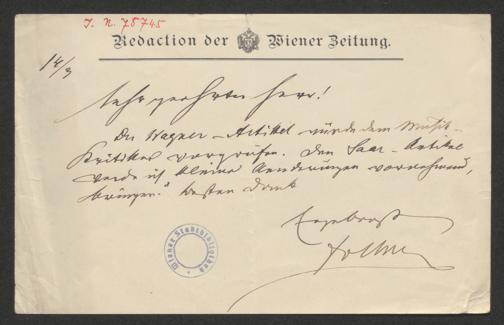 J. N. 78745
Redaction der Wiener Zeitung.
14/9
Sehr geehrter Herr!
Der Wagner-Artikel würde dem Musik-
Kritiker vorgreifen. Den Saar-Artikel
werde ich kleine Aenderungen vornehmend,
bringen. Besten Dank
Ergebenst
Wiener Stadtbibliothek